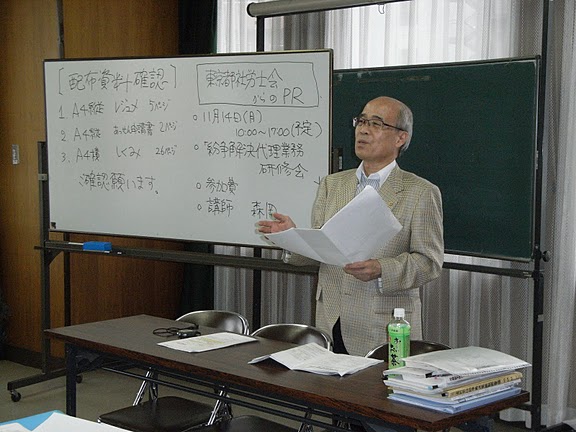 [配布資料確認]
1. A4判縦 レジュメ 5ページ
2. A4判縦 あっせん申請書 2ページ
3. A4横 しくみ 26ページ
ご確認願います。
東京都社労士会
からのPR
○ 11月14日(月)
10:00~17:00(予定)
○ 紛争解決代理業務
研修会
○ 参加費
○ 講師 森岡